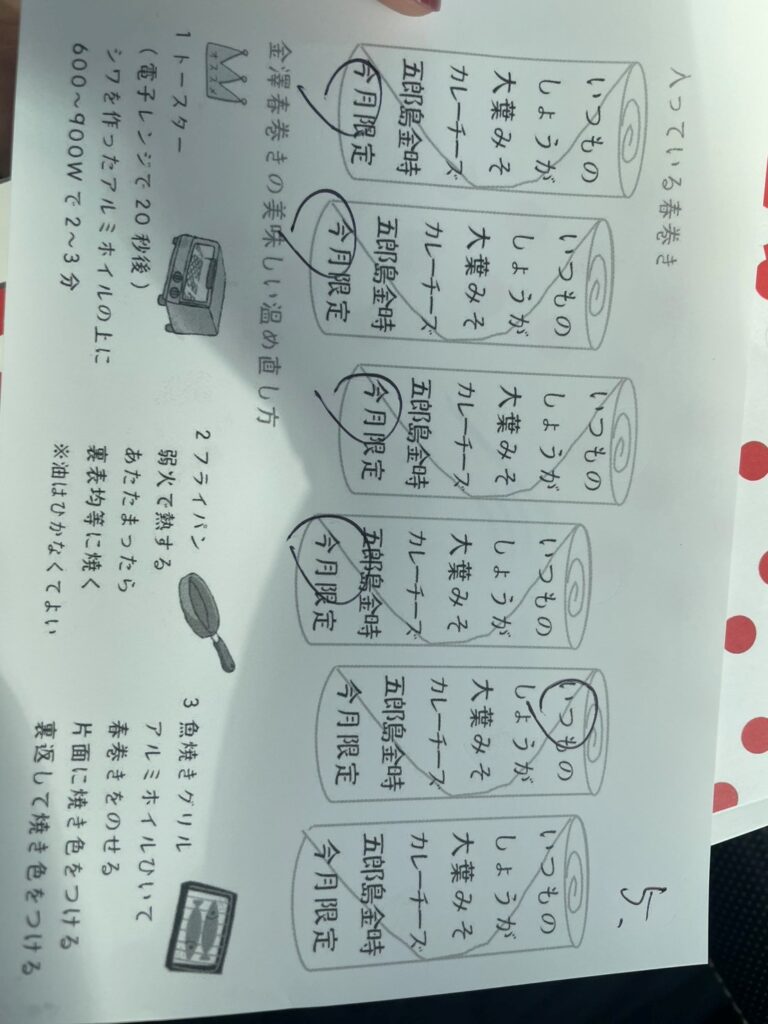 入っている春巻き
5、
いつもの
しょうが
大葉みそ
カレーチーズ
五郎島金時
今月限定
いつもの
しょうが
大葉みそ
カレーチーズ
五郎島金時
今月限定
いつもの
しょうが
大葉みそ
カレーチーズ
五郎島金時
今月限定
いつもの
しょうが
大葉みそ
カレーチーズ
五郎島金時
今月限定
いつもの
しょうが
大葉みそ
カレーチーズ
五郎島金時
今月限定
いつもの
しょうが
大葉みそ
カレーチーズ
五郎島金時
今月限定
金澤春巻きの美味しい温め直し方
オススメ
1 トースター
(電子レンジで20秒後)
シワを作ったアルミホイルの上に
600～900Wで2～3分
2 フライパン
弱火で熱する
あたたまったら
裏表均等に焼く
※油はひかなくてよい
3 魚焼きグリル
アルミホイルひいて
春巻きをのせる
片面に焼き色をつける
裏返して焼き色をつける